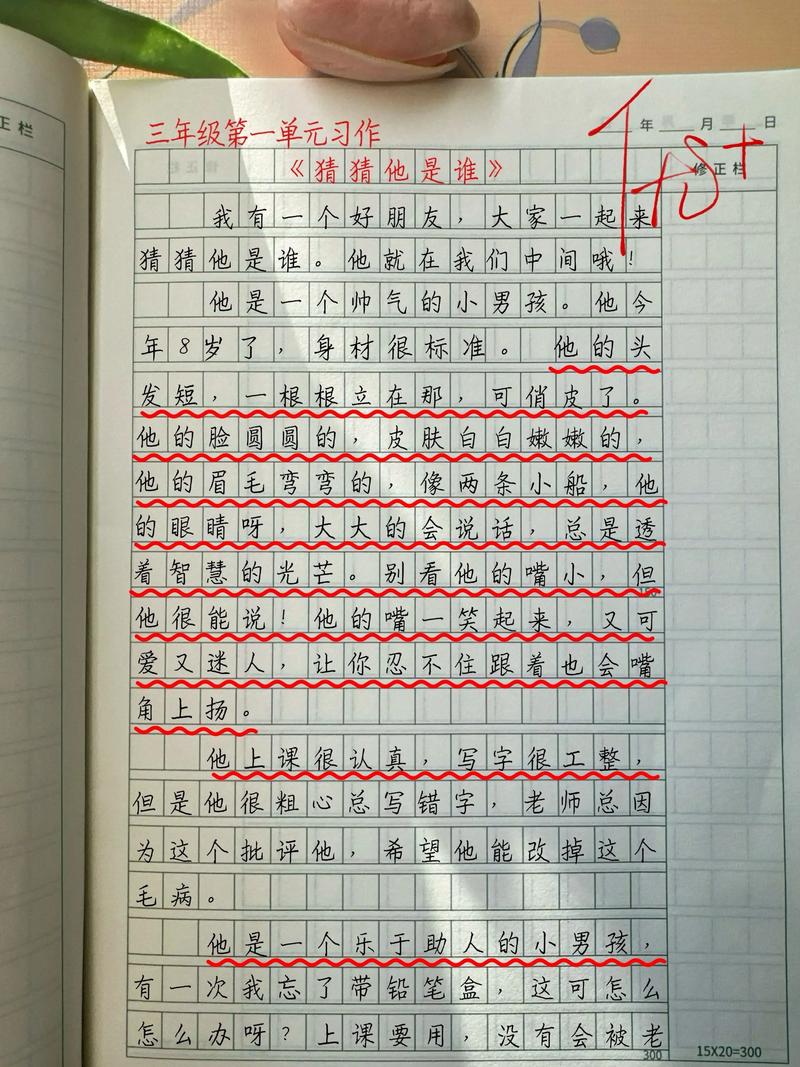 正栏
年 月 日
三年级第一单元习作
优+
修正栏
《猜猜他是谁》
我有一个好朋友，大家一起来
猜猜他是谁。他就在我们中间哦！
他是一个帅气的小男孩。他今
年8岁了，身材很标准。他的头
发短，一根根立在那，可俏皮了。
他的脸圆圆的，皮肤白白嫩嫩的，
他的眉毛弯弯的，像两条小船，他
的眼睛呀，大大的会说话，总是透
着智慧的光芒。别看他的嘴小，但
他很能说！他的嘴一笑起来，又可
爱又迷人，让你忍不住跟着也会嘴
角上扬。
他上课很认真，写字很工整，
但是他很粗心总写错字，老师总因
为这个批评他，希望他能改掉这个
毛病。
他是一个乐于助人的小男孩，
有一次我忘了带铅笔盒，这可怎么
怎么办呀？上课要用，没有会被老
300
15X20=300